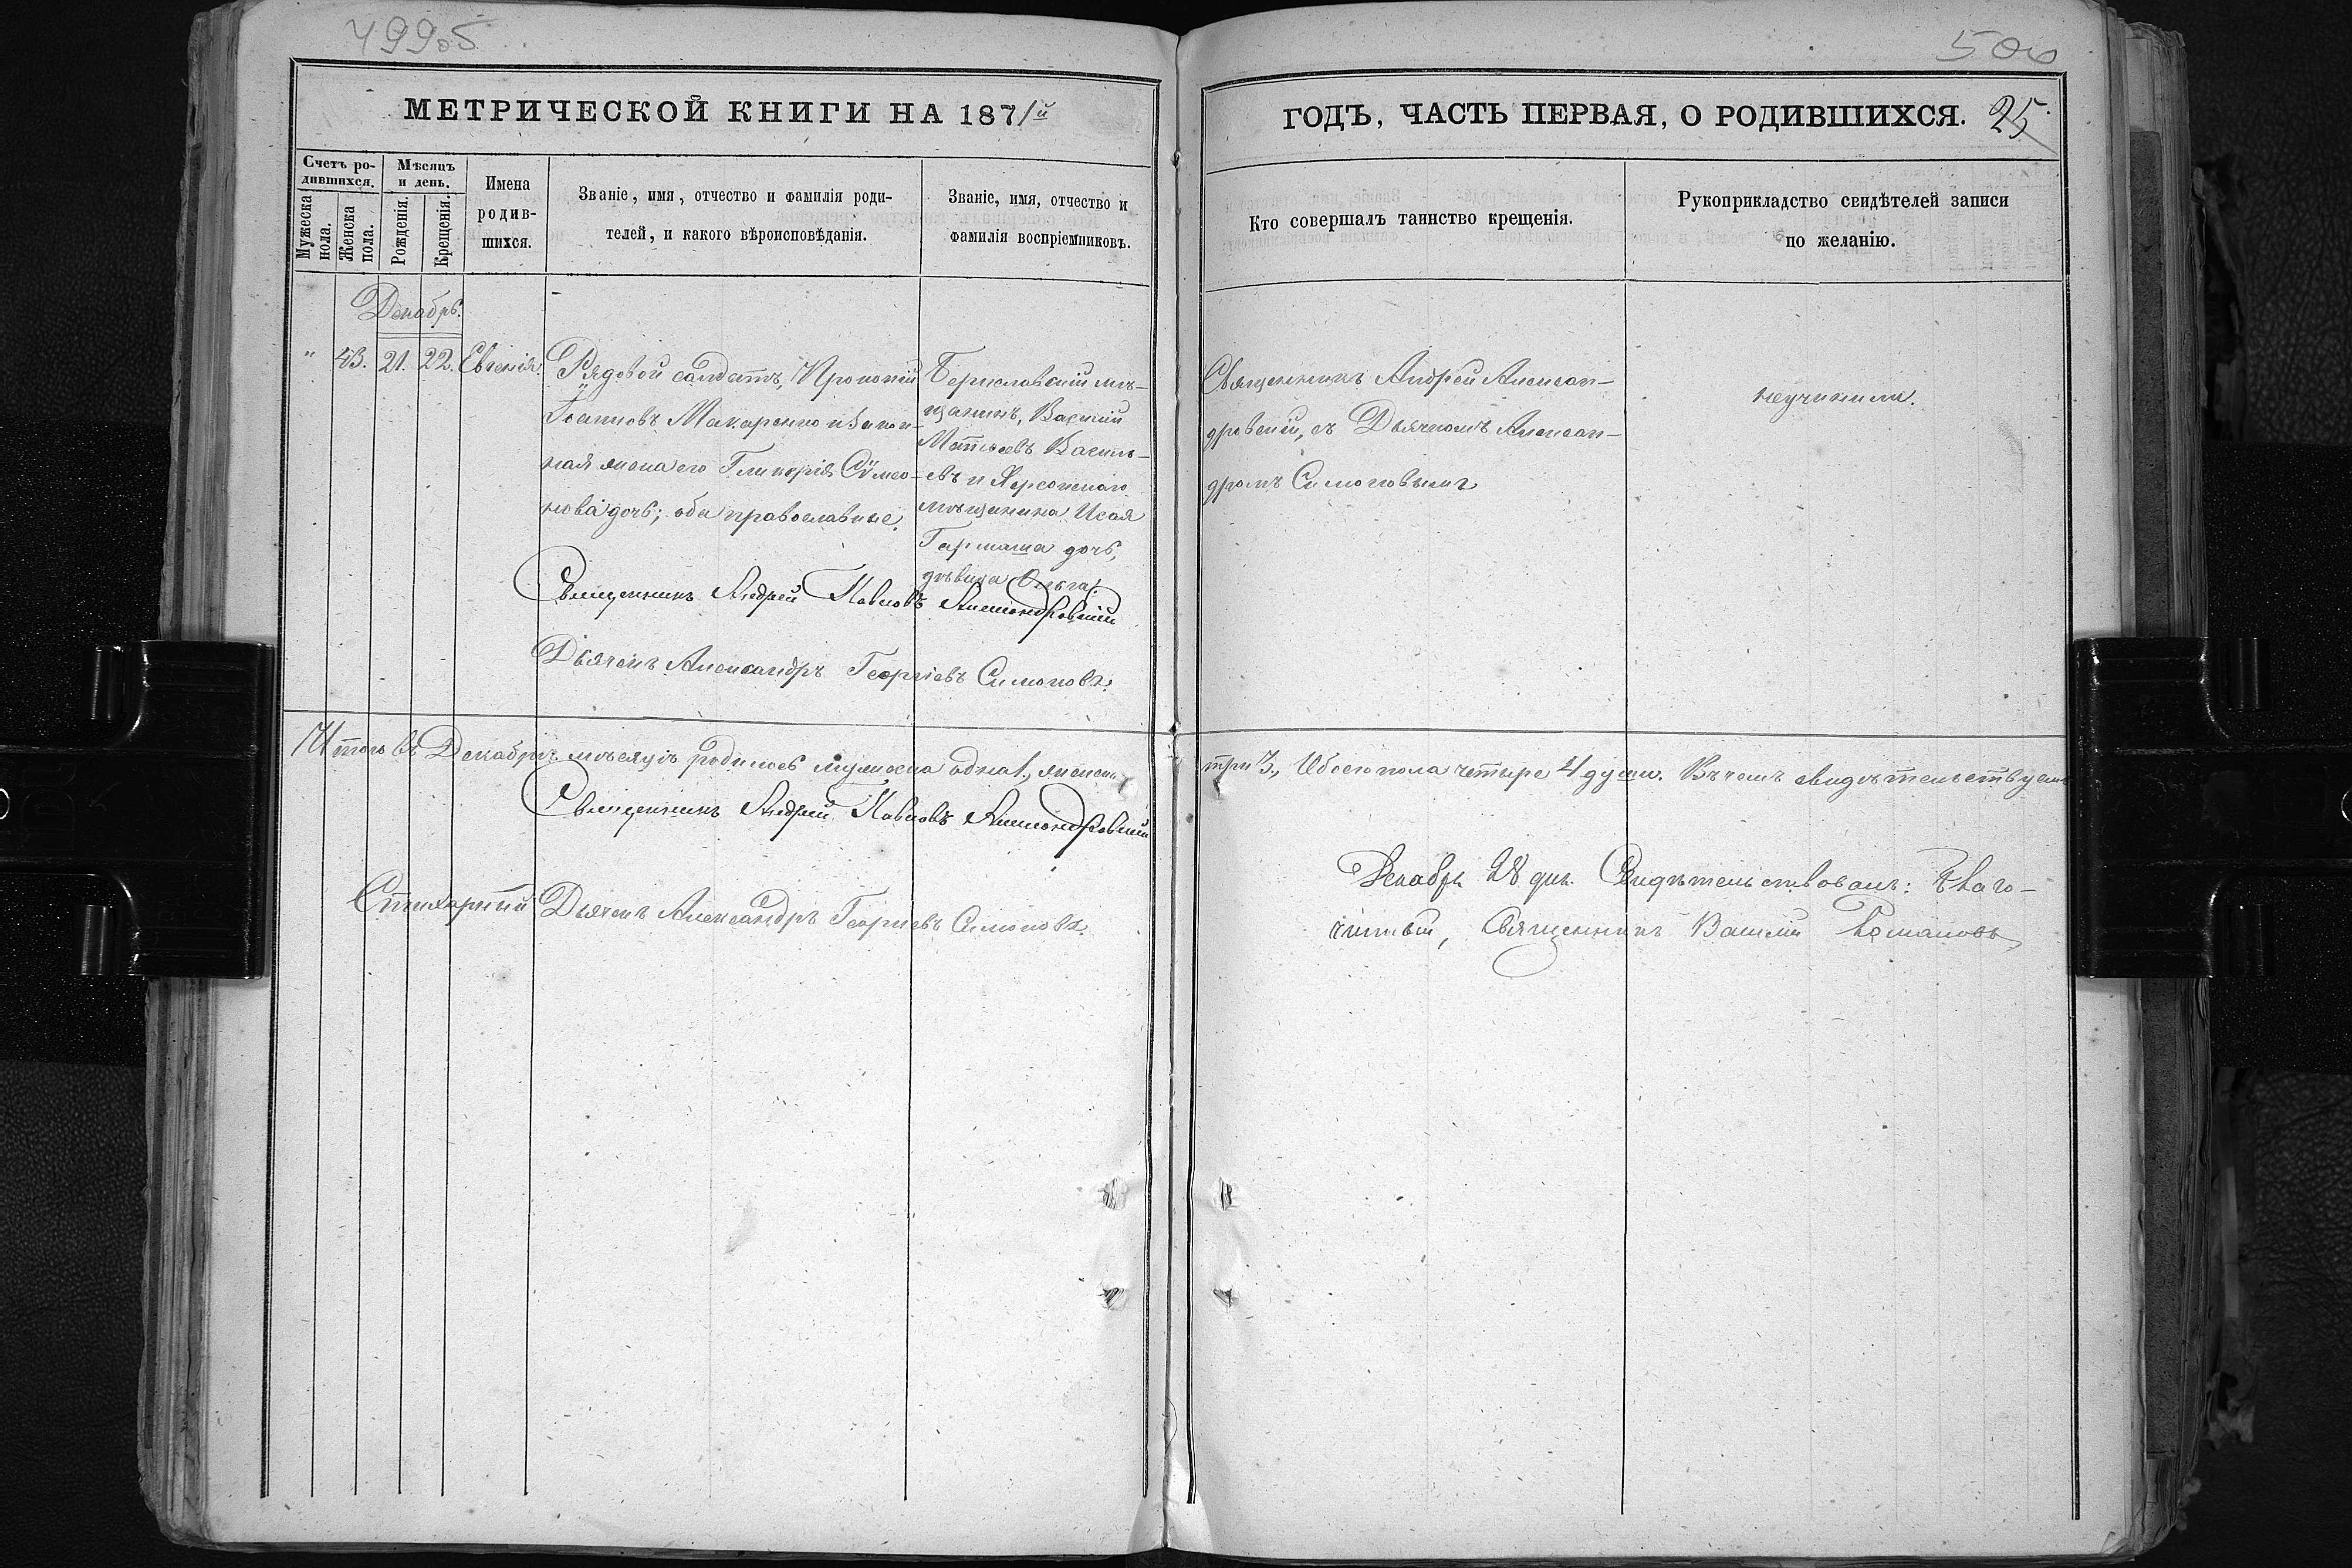 49905
500
МЕТРИЧЕСКОЙ КНИГИ НА 1871й
ГОДЪ, ЧАСТЬ ПЕРВАЯ, О РОДИВШИХСЯ. 25.
Счетъ ро-
дившихся.
Мужеска
пола.
Женска
пола.
Мѣсяцъ
и день.
Рожденія.
Крещенія.
Имена
родив-
шихся.
Званіе, имя, отчество и фамилія роди-
телей, и какого вѣроисповѣданія.
Званіе, имя, отчество и
фамилія воспріемниковъ.
Кто совершалъ таинство крещенія.
Рукоприкладство свидѣтелей записи
по желанію.
Декабрь.
" 43. 21. 22. Евгенія.
Рядовой солдатъ, Прокопій
Іоанновъ Макаренко и закон-
ная жена его Гликерія Сѵмео-
нова дочь; оба православные.
Бериславскій мѣ-
щанинъ, Василій
Матѳеевъ Василь-
евъ и Херсонскаго
мѣщанина Исая
Гармаша дочь,
дѣвица Ольга.
Священникъ Андрей Алексан-
дровскій, съ Дьячкомъ Алексан-
дромъ Симоновымъ
неучинили.
Священникъ Андрей Павловъ Александровскій
Дьячекъ Александръ Георгіевъ Симоновъ.
Итого въ Декабрѣ мѣсяцѣ родилось мужеска одна 1., женска
три 3., Обоего пола четыре 4 души. Въ чемъ свидѣтельствуемъ
Священникъ Андрей Павловъ Александровскій
Стихарный Дьячекъ Александръ Георгіевъ Симоновъ.
Декабря 28 дня. Свидѣтельствовалъ: Благо-
чинный, Священникъ Василій Романовъ